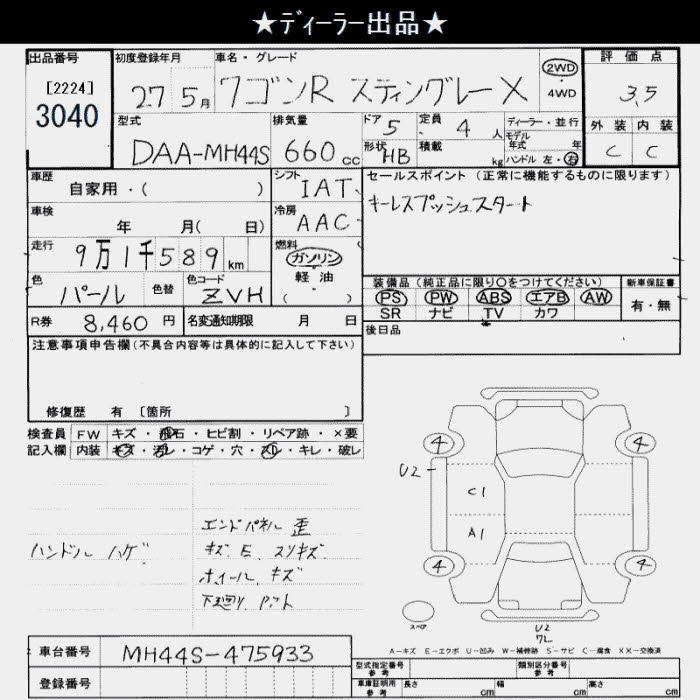 ★ディーラー出品★
出品番号
[2224]
3040
初度登録年月
27 5月
車名・グレード
ワゴンR スティングレー X
2WD
4WD
評価点
3.5
外装 内装
C C
型式
DAA-MH44S
排気量
660 cc
ドア 5
形状 HB
定員 4 人
積載 kg
ディーラー・並行
モデル年式 年
ハンドル 左・右
車歴
自家用・( )
シフト
IAT
セールスポイント (正常に機能するものに限ります)
キーレスプッシュスタート
車検
年 月( 日)
冷房
AAC
走行
9万1千589 km
燃料
ガソリン
軽油
( )
色
パール
色替
色コード
ZVH
装備品 (純正品に限り○をつけてください)
PS PW ABS エアB AW
SR ナビ TV カワ
新車保証書
有・無
R券
8,460 円
名変通知期限 月 日
後日品
注意事項申告欄 (不具合内容等は具体的に記入して下さい)
修復歴 有 〔箇所 〕
検査員 FW キズ・飛石・ヒビ割・リペア跡・×要
記入欄 内装 キズ・汚レ・コゲ・穴・スレ・キレ・破レ
ハンドル ハゲ
エンドパネル 歪
キズ.E.スリキズ
ホイール.キズ
下廻り.P.ット
4 4
U2
C1
A1
4 4
スペア
U2
72
A-キズ E-エクボ U-凹み W-補修跡 S-サビ C-腐食 XX-交換済
車台番号
MH44S-475933
登録番号
型式指定番号 参考
類別区分番号 参考
車庫証明用 参考
長さ cm 幅 cm 高さ cm